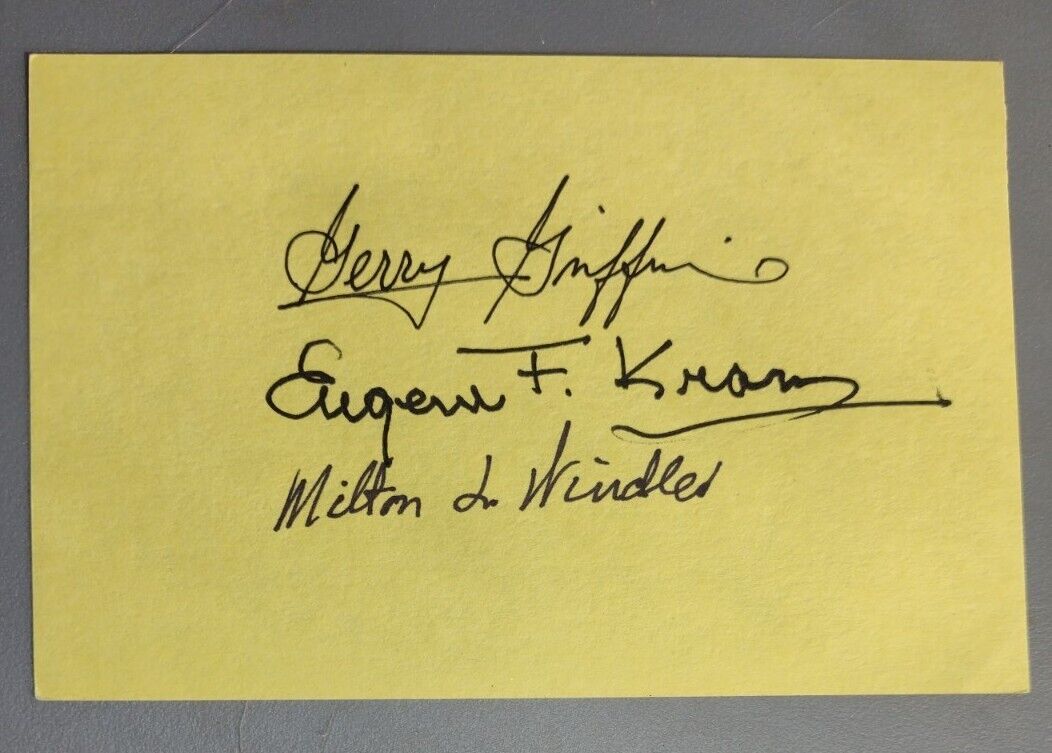 Gerry Griffin
Eugene F. Kranz
Milton L. Windler